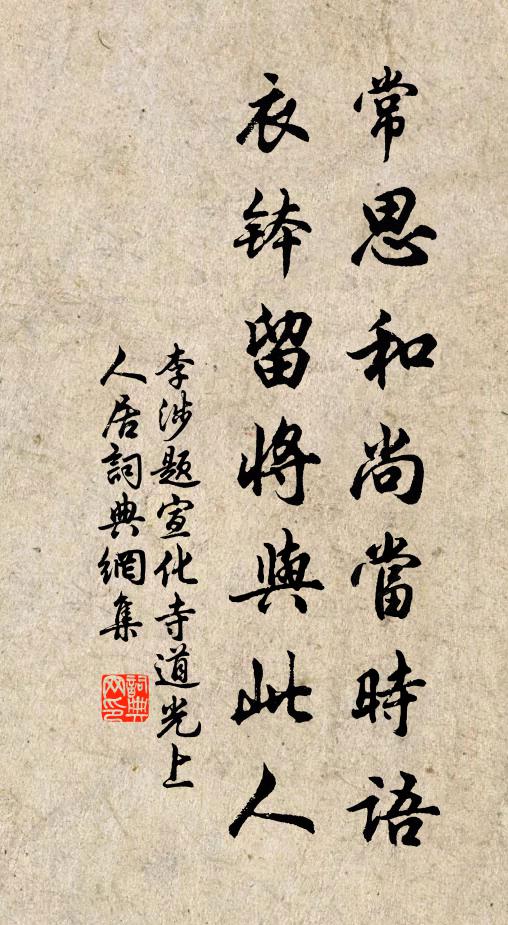 常思和尚當時語
衣鉢留將與此人
李涉題宣化寺道光上
人居詞典網集
詞典
网印